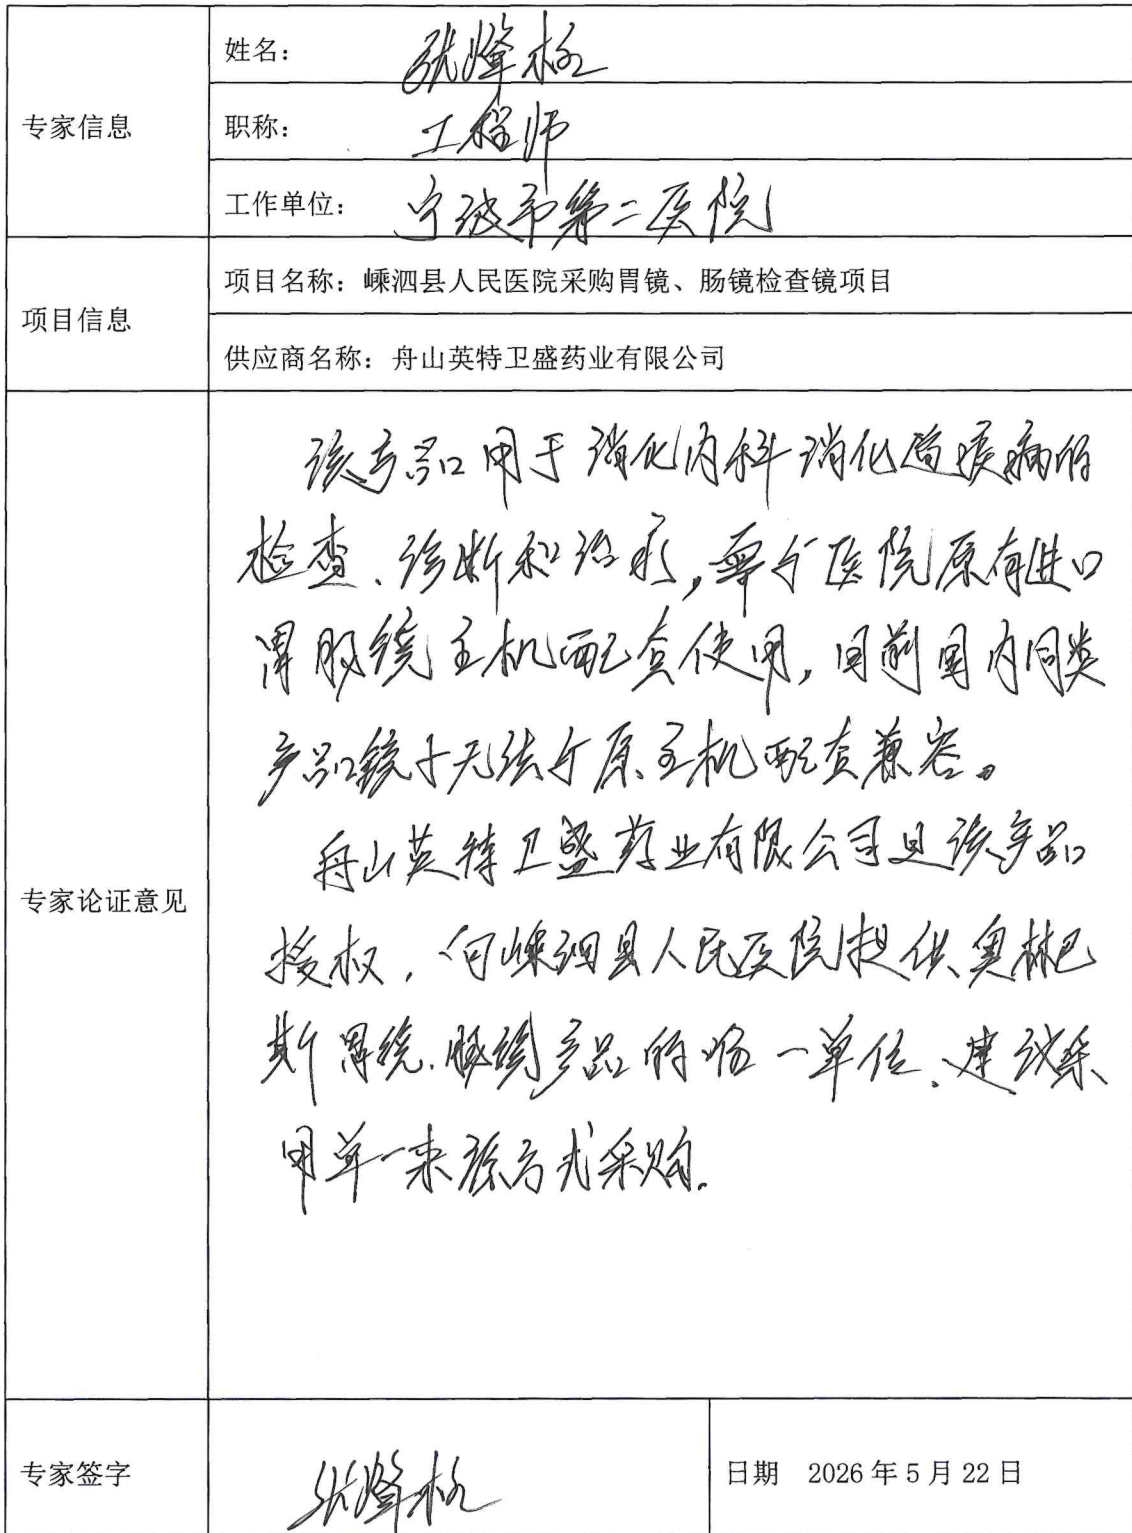 专家信息
姓名：张烽
职称：工程师
工作单位：宁波市第二医院
项目信息
项目名称：嵊泗县人民医院采购胃镜、肠镜检查镜项目
供应商名称：舟山英特卫盛药业有限公司
专家论证意见
该产品用于消化内科消化道疾病的
检查、诊断和治疗，需与医院原有进口
胃肠镜主机配套使用，目前国内同类
产品镜子无法与原主机配套兼容。
舟山英特卫盛药业有限公司是该产品
授权，向嵊泗县人民医院提供奥林巴
斯胃镜、肠镜产品的唯一单位、建议采
用单一来源方式采购.
专家签字
张烽
日期 2026年5月22日